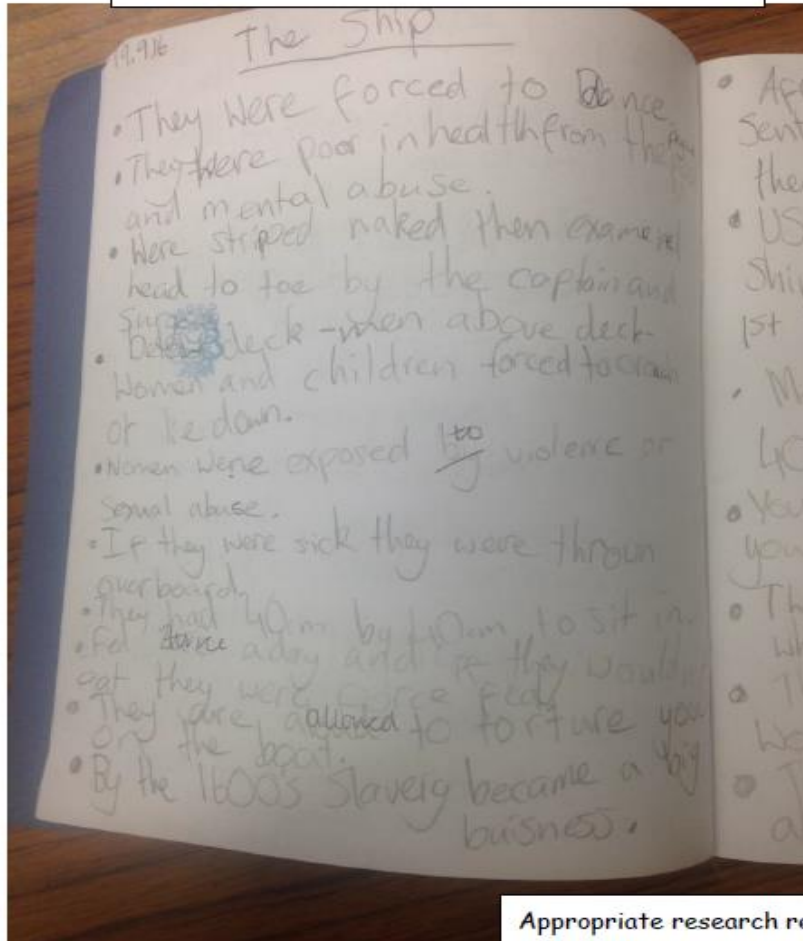 19.9.16
The Ship
• They were forced to Dance
• They were poor in health from the
and mental abuse.
• Were striped naked then
head to toe by the captain and
• deck - men above deck
women and children forced to
or lie down.
• Women were exposed to violence or
sexual abuse.
• If they were sick they were thrown
overboard
• They had 40cm by 40cm to sit in.
• Fed a day and if they
eat they were force fed
• They are allowed to torture you
on the boat.
• By the 1600's Slavery became a big
buisness.
• Af
Sent
the
• US
Shi
1st
• M
40
• You
you
• Th
wh
• T
wo
• T
a
Appropriate research re